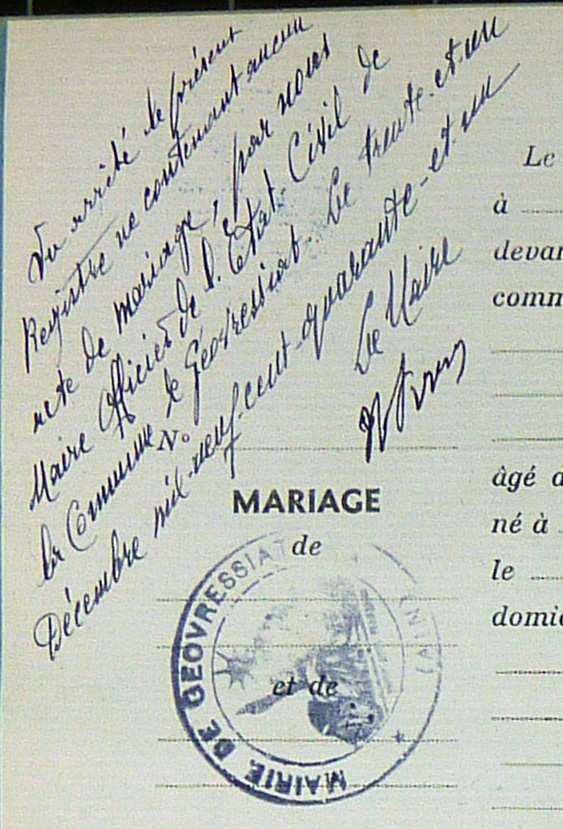 Vu arrêté le présent
Registre ne contenant aucun
acte de mariage, par nous
Maire Officier de l'Etat-Civil de
la Commune de Géovressiat. Le trente-et-un
Décembre mil-neuf-cent-quarante-et-un
Le Maire
No
MARIAGE
de
et de
MAIRIE DE GEOVRESSIAT (AIN)
Le
à
devan
comm
âgé d
né à
le
domic